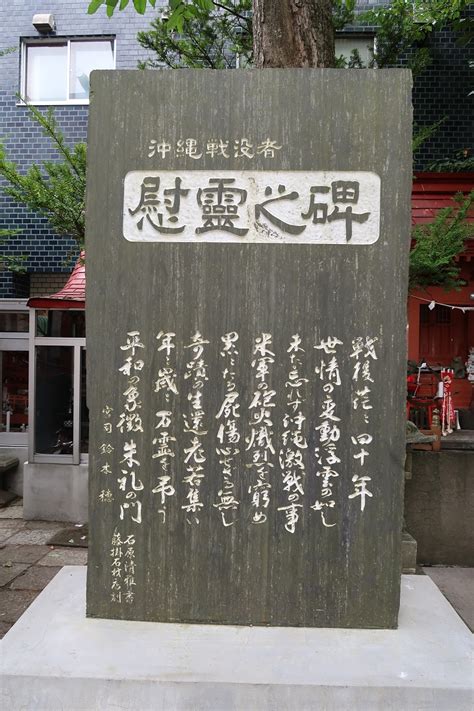 沖縄戦没者
慰靈之碑
戦後茫々四十年
世情の変動浮雲の如し
未だ忘れず沖縄激戦の事
米軍の砲火熾烈を窮め
黒々たる屍傷心せざる無し
奇蹟の生還老若集い
年歳に万霊を弔う
平和の象徴朱礼の門
宮司 鈴木 穂
石原清雅書
藤掛石材店刻